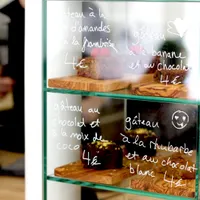 gâteau à la
amandes
framboise
4€
gâteau
à la banane
et au chocolat
4€
gâteau au
chocolat et
à la noix de
coco 4€
gâteau
à la rhubarbe
et au chocolat
blanc 4€